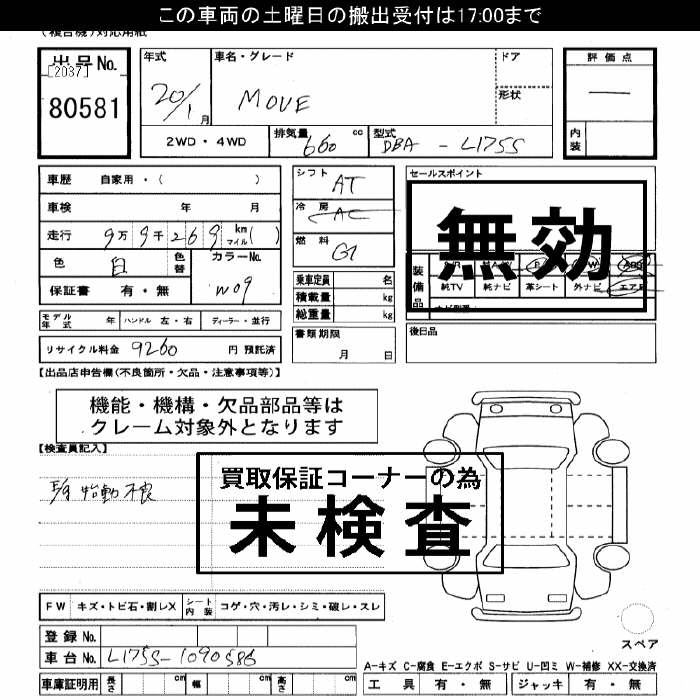 この車両の土曜日の搬出受付は17:00まで
(複合機)対応用紙
出品No.
[2037]
80581
年式
20/1月
車名・グレード
MOVE
ドア
形状
評価点
—
内装
2WD・4WD
排気量
660 cc
型式
DBA - L175S
車歴 自家用・( )
車検 年 月
走行 9万9千269 km マイル( )
色 白 色替
カラーNo.
W09
保証書 有・無
モデル年式 年 ハンドル 左・右 ディーラー・並行
リサイクル料金 9260 円 預託済
シフト AT
冷房 AC
燃料 G
乗車定員 名
積載量 kg
総重量 kg
書類期限
月 日
セールスポイント
無効
装備品
純TV 純ナビ 革シート 外ナビ エアB
後日品
【出品店申告欄(不良箇所・欠品・注意事項等)】
機能・機構・欠品部品等は
クレーム対象外となります
【検査員記入】
始動不良
買取保証コーナーの為
未検査
FW キズ・トビ石・割レX シート内装 コゲ・穴・汚レ・シミ・破レ・スレ
登録No.
車台No. L175S-1090586
車庫証明用 長さ cm 幅 cm 高さ cm
スペア
A-キズ C-腐食 E-エクボ S-サビ U-凹ミ W-補修 XX-交換済
工具 有・無 ジャッキ 有・無